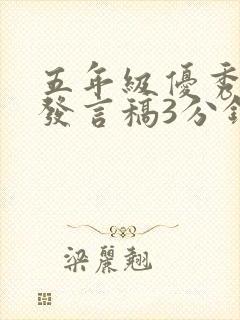 五年級優秀
發言稿3分鐘
梁麗翹